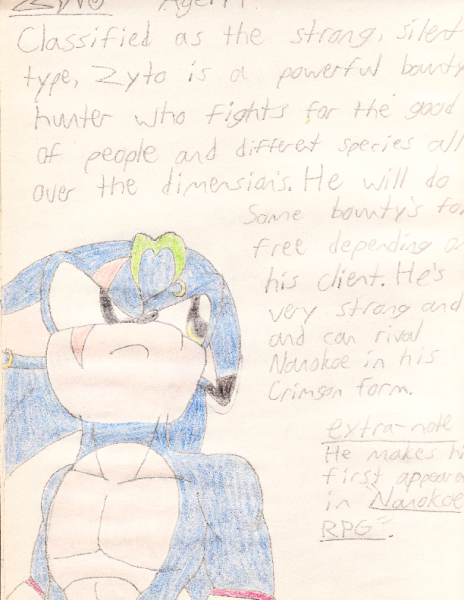 Zyto Age: 19
Classified as the strong, silent
type, Zyto is a powerful bounty
hunter who fights for the good
of people and different species all
over the dimension's. He will do
Some bounty's for
free depending on
his client. He's
very strong and
and can rival
Nanokoe in his
Crimson form.
extra-note
He makes hi
first appeara
in Nanokoe
RPG".